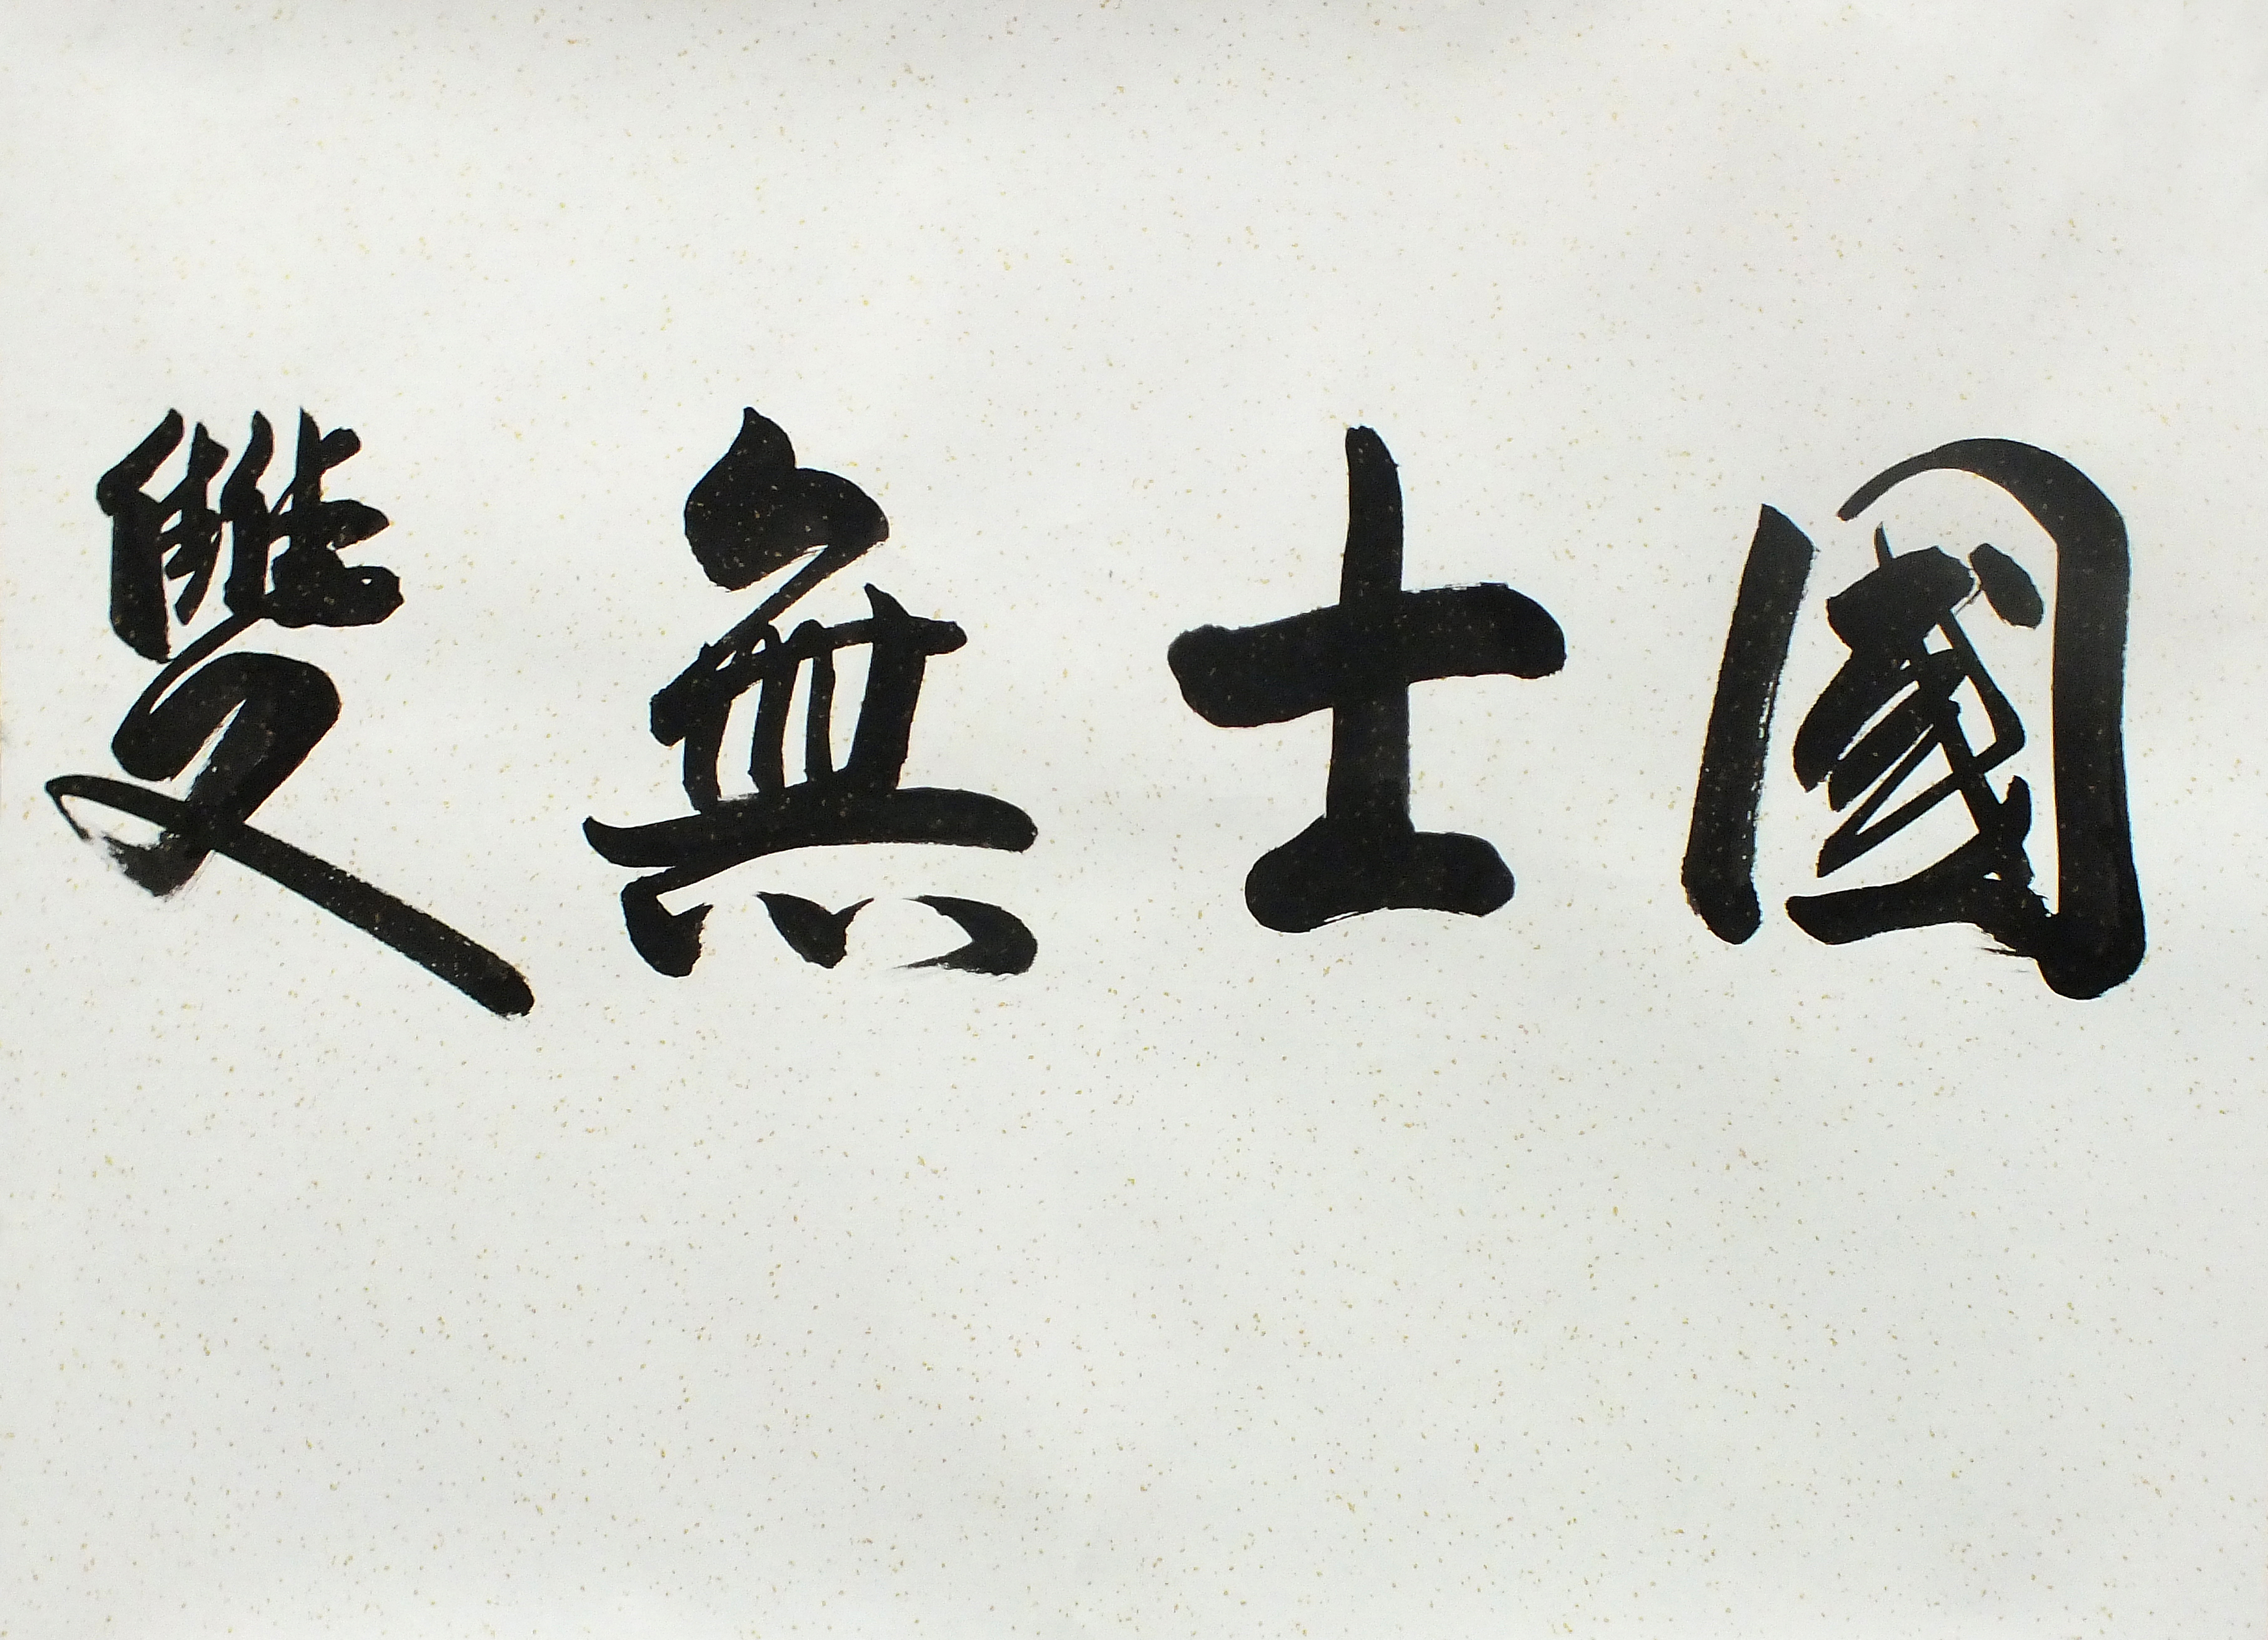 國士無雙